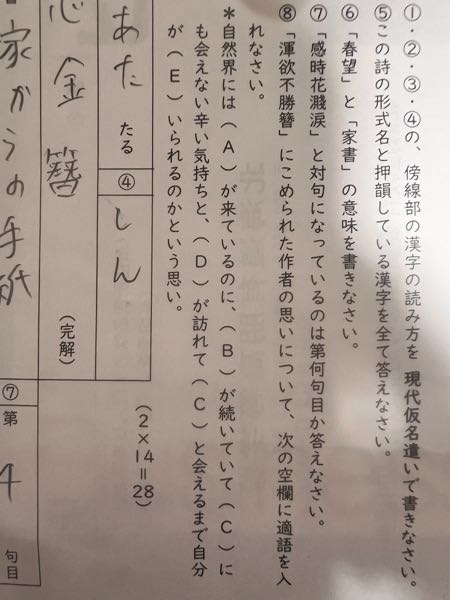 ①・②・③・④の、傍線部の漢字の読み方を 現代仮名遣いで書きなさい。
⑤この詩の形式名と押韻している漢字を全て答えなさい。
⑥「春望」と「家書」の意味を書きなさい。
⑦「感時花濺涙」と対句になっているのは第何句目か答えなさい。
⑧「渾欲不勝簪」にこめられた作者の思いについて、次の空欄に適語を入
れなさい。
＊自然界には（A）が来ているのに、（B）が続いていて（C）に
も会えない辛い気持ちと、（D）が訪れて（C）と会えるまで自分
が（E）いられるのかという思い。
（2×14＝28）
あた たる
④ しん
金 簪 （完解）
家からの手紙
⑦ 第 4 句目